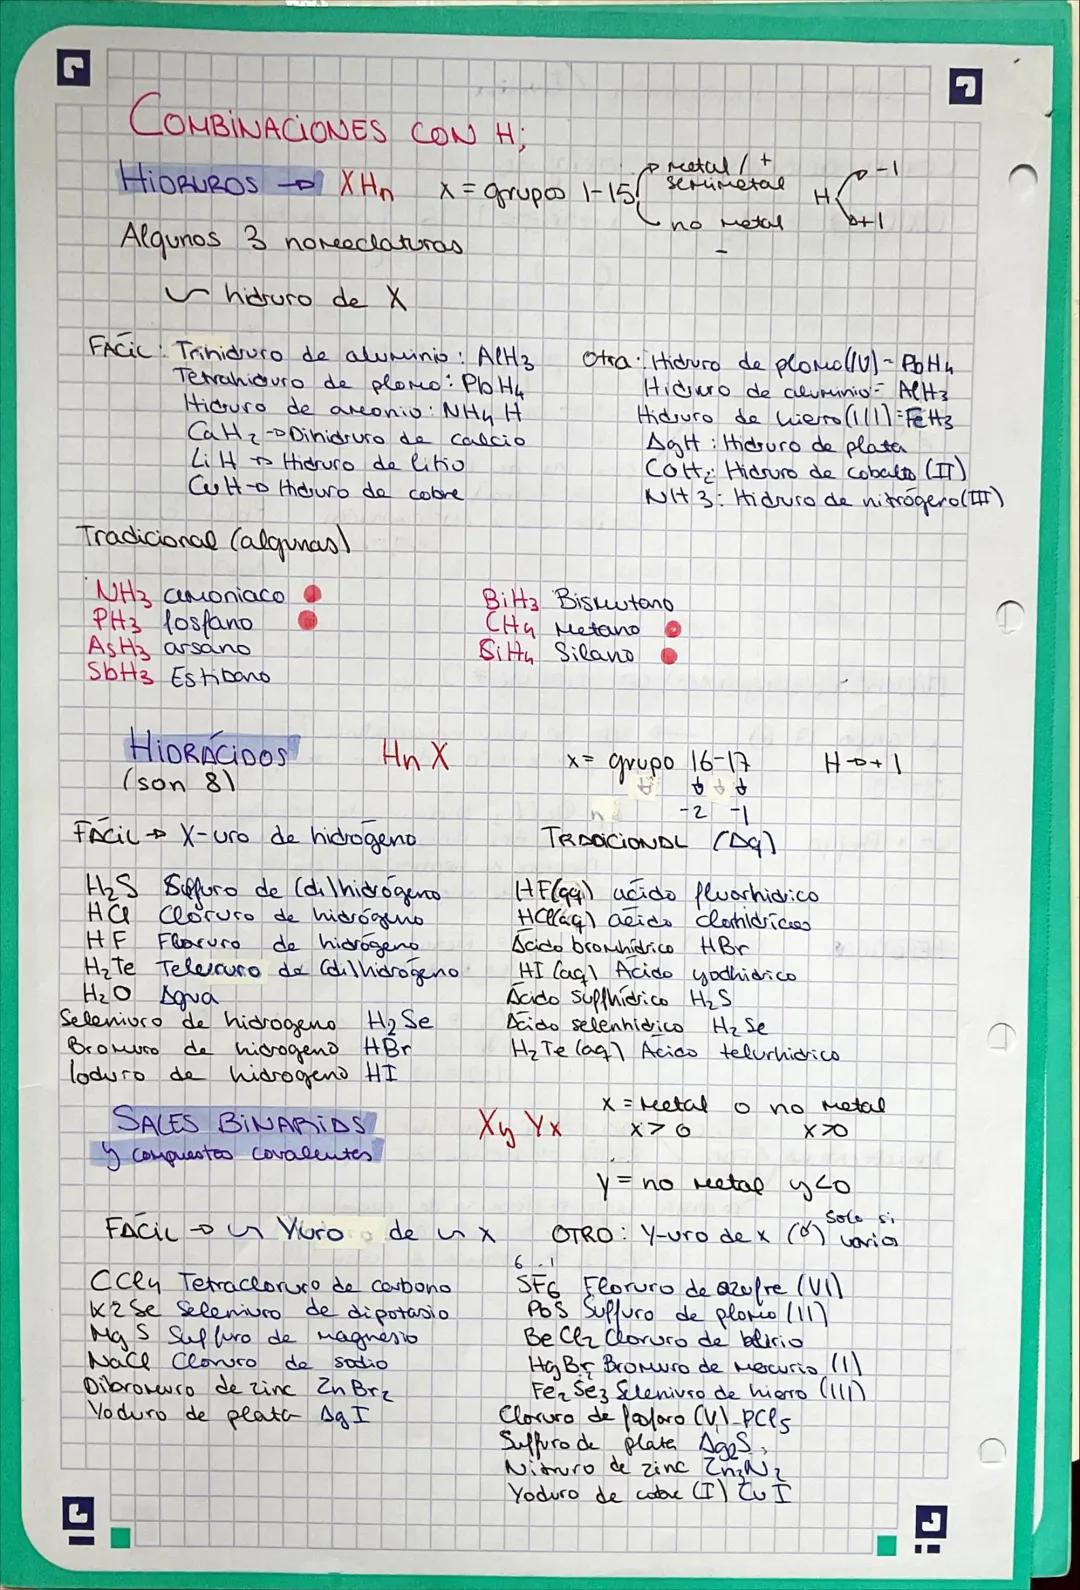 COMBINACIONES CON H;
HIDRUROS → XHn x = grupos 1-15 metal / + semimetal no metal - H -1 +1
Algunos 3 nomeclaturas
hidruro de X
FÁCIL: Trihidruro de aluminio: AlH3
Tetrahidruro de plomo: PbH4
Hidruro de amonio: NH4 H
CaH2 → Dihidruro de calcio
LiH → Hidruro de litio
CuH → Hidruro de cobre
Otra: Hidruro de plomo (IV) - PbH4
Hidruro de aluminio = AlH3
Hidruro de hierro (III) = FeH3
AgH: Hidruro de plata
CoH2: Hidruro de cobalto (II)
NH3: Hidruro de nitrógeno (III)
Tradicional (algunas)
NH3 amoniaco
PH3 fosfano
AsH3 arsano
SbH3 Estibano
BiH3 Bismutano
CH4 Metano
SiH4 Silano
HIDRÁCIDOS HnX x = grupo 16-17 H → +1
(son 8) -2 -1
FÁCIL → X-uro de hidrógeno
H2S Sulfuro de (di)hidrógeno
HCl Cloruro de hidrógeno
HF Floruro de hidrógeno
H2Te Telururo de (di)hidrógeno
H2O Agua
Seleniuro de hidrogeno H2Se
Bromuro de hidrogeno HBr
Ioduro de hidrogeno HI
TRADICIONAL (Aq)
HF(aq) ácido fluorhídrico
HCl(aq) ácido clorhídrico
Ácido bromhídrico HBr
HI (aq) Ácido yodhídrico
Ácido sulfhídrico H2S
Ácido selenhídrico H2Se
H2Te (aq) Ácido telurhídrico
SALES BINARIAS Xy Yx x = metal o no metal
y compuestos covalentes x > 0 x > 0
y = no metal y < 0
FÁCIL → Yuro de x
CCl4 Tetracloruro de carbono
K2Se Seleniuro de dipotasio
MgS Sulfuro de magnesio
NaCl Cloruro de sodio
Dibromuro de zinc ZnBr2
Yoduro de plata AgI
OTRO: Y-uro de x Solo si varios
6 -1
SF6 Floruro de azufre (VI)
PbS Sulfuro de plomo (II)
BeCl2 Cloruro de berilio
HgBr Bromuro de mercurio (I)
Fe2Se3 Seleniuro de hierro (III)
Cloruro de fósforo (V) - PCl5
Sulfuro de plata Ag2S
Nitruro de zinc Zn3N2
Yoduro de cobre (I) CuI